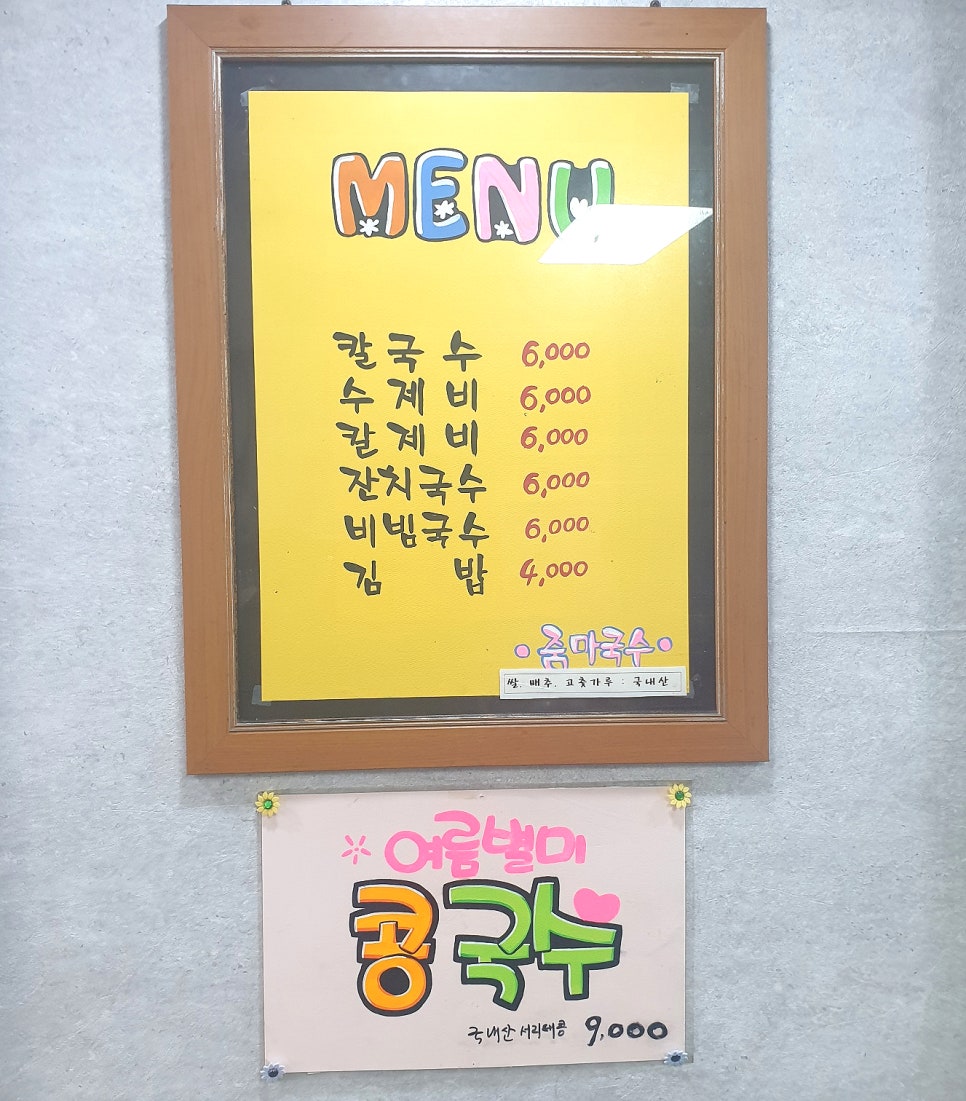 MENU
칼국수 6,000
수제비 6,000
칼제비 6,000
잔치국수 6,000
비빔국수 6,000
김밥 4,000
줌마국수
쌀, 배추, 고춧가루 : 국내산
여름별미
콩국수
국내산 서리태콩 9,000